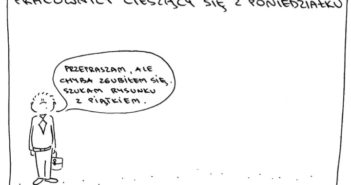 PRACOWNICY CIESZĄCY SIĘ Z PONIEDZIAŁKU
PRZEPRASZAM, ALE
CHYBA ZGUBIŁEM SIĘ.
SZUKAM RYSUNKU
Z PIĄTKIEM.